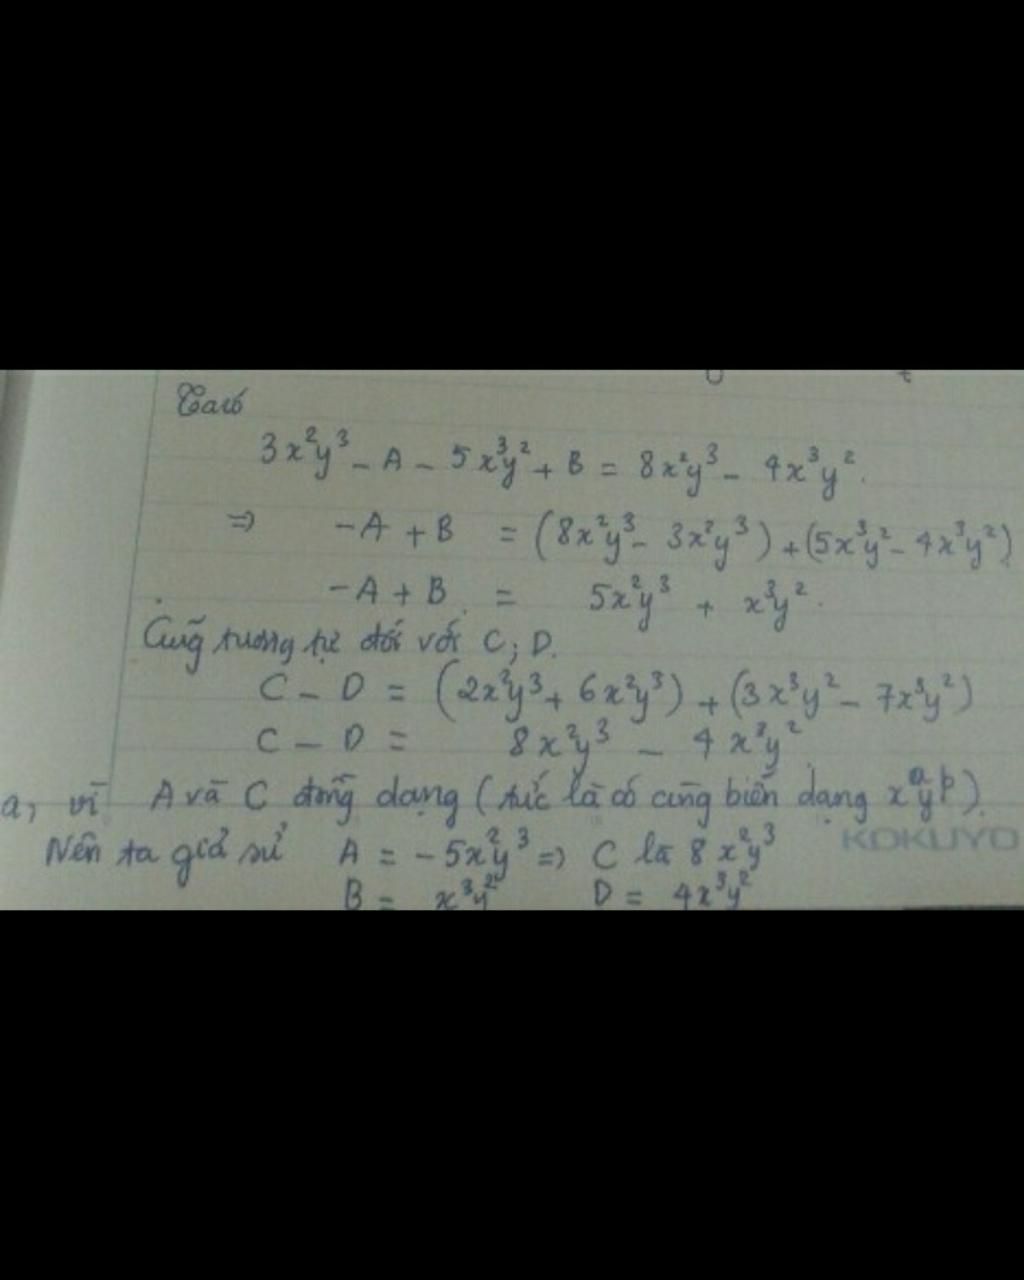 Ta có
3x²y³ - A - 5x³y² + B = 8x²y³ - 4x³y².
=> -A + B = (8x²y³ - 3x²y³) + (5x³y² - 4x³y²)
-A + B = 5x²y³ + x³y².
Cũng tương tự đối với C; D.
C - D = (2x²y³ + 6x²y³) + (3x³y² - 7x³y²)
C - D = 8x²y³ - 4x³y²
a, vì A và C đồng dạng (tức là có cùng biến dạng xᵃyᵇ).
KOKUYO
Nên ta giả sử A = -5x²y³ => C là 8x²y³
B = x³y² D = 4x³y²